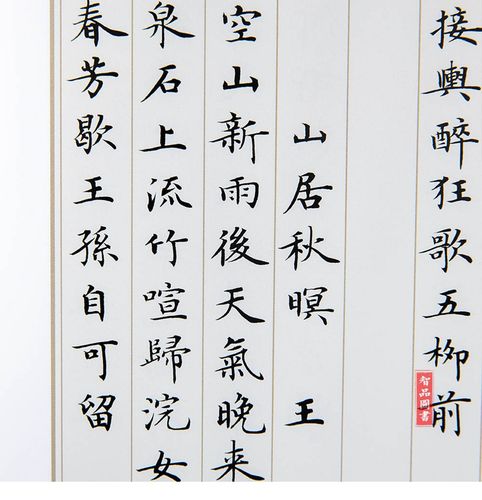 接輿醉狂歌五柳前
山居秋暝 王
空山新雨後天氣晚来
泉石上流竹喧歸浣女
春芳歇王孫自可留
智品圖書